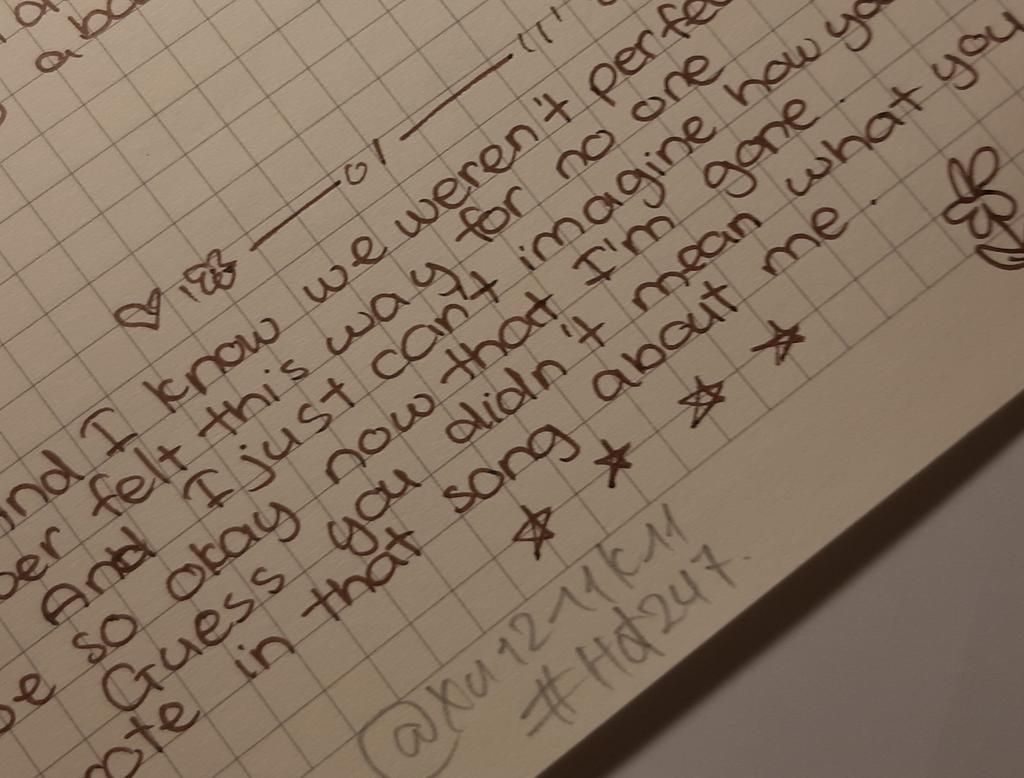 know we weren't
felt this way for no one
And I just can't imagine how
so okay now that I'm gone.
Guess you didn't mean what you
in that song about me.
@xu1211k11
#Hd247.